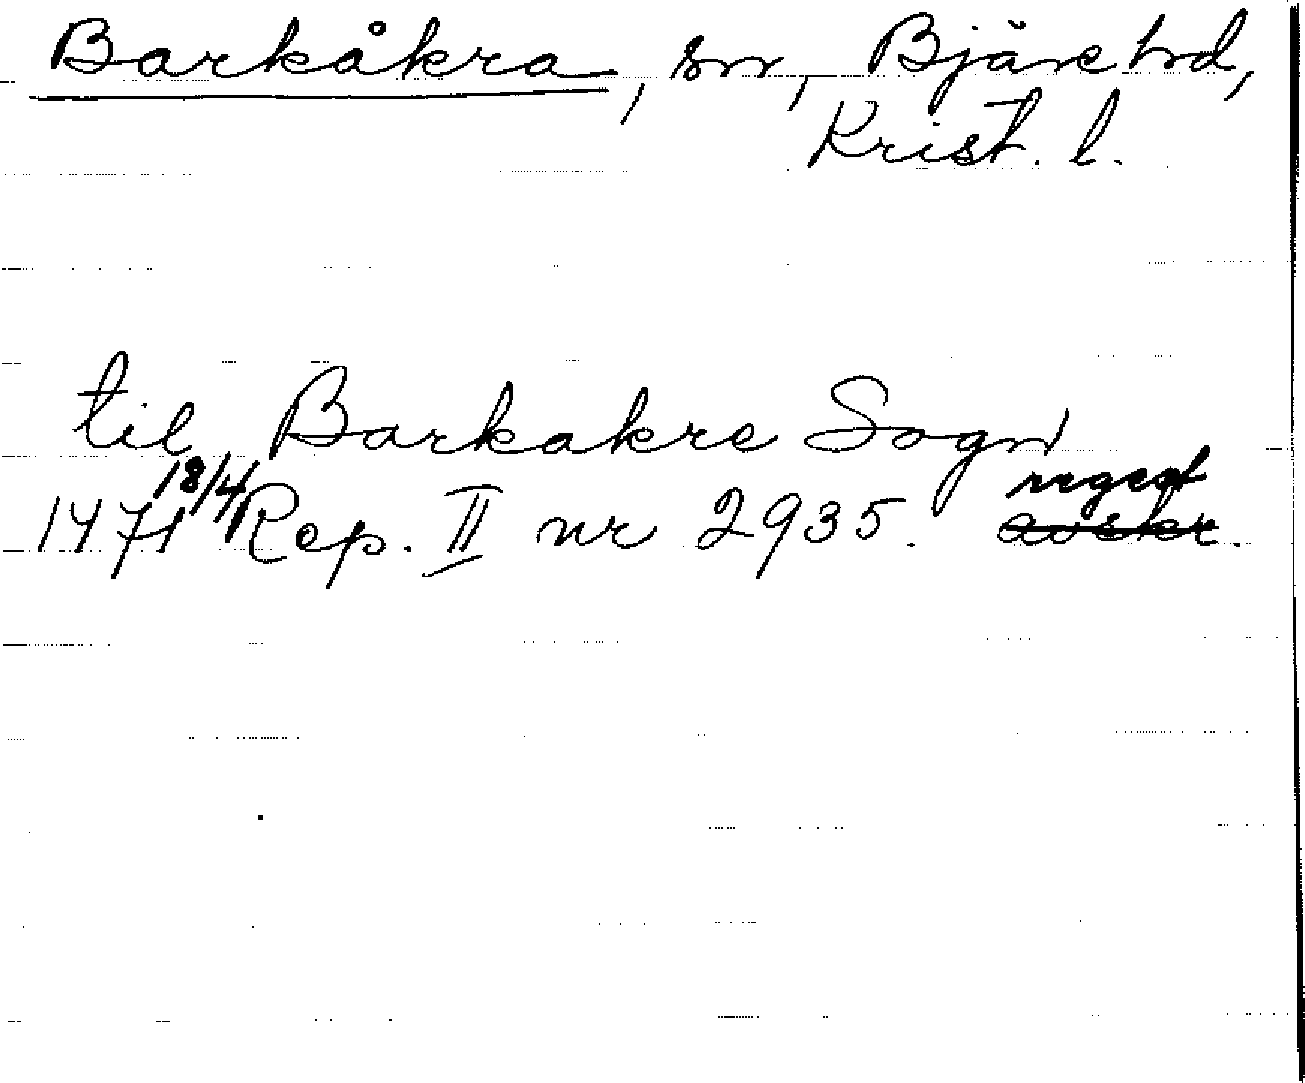 Barkåkra, sn, Bjäre hd,
Krist. l.
til Barkakre Sogn
1471 18/4 Rep. II nr 2935. regest avskr.